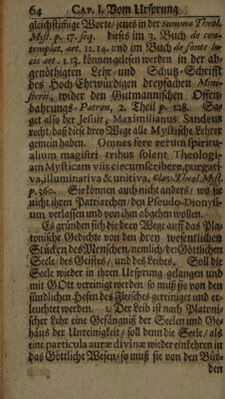 64 CAP. I. Vom Ursprung
gleichstüffige Worte/ jenes in der Summa Theol.
Myst. p. 17. seq. dieses im 3. Buch de con-
templat. art. 12. 14. und im Buch de fonte lu-
cis art. 1. 13. können gelesen werden in der ab-
genöthigten Lehr-und Schutz-Schrifft
des Hoch-Ehrwürdigen dreyfachen Mini-
sterii, wider den Gutmannischen Offen-
bahrungs-Patron, 2. Theil p. 128. Sa-
get also der Jesuit, Maximilianus Sandeus
recht/ daß diese drey Wege alle Mystische Lehrer
gemein haben. Omnes fore rerum spiritu-
alium magistri tribus solent Theologi-
am Mysticam viis circumscribere, purgati-
va, illuminativa & unitiva. Clav. Theol. Myst.
p. 360. Sie können auch nicht anders/ wo sie
nicht ihren Patriarchen/ den Pseudo-Dionysi-
um, verlassen und von ihm abgehen wollen.
Es gründen sich die drey Wege auff das Pla-
tonische Gedicht von den drey wesentlichen
Stücken des Menschen/ nemlich der Göttlichen
Seele/ des Geistes/ und des Leibes. Soll die
Seele wieder in ihren Ursprung gelangen und
mit GOtt vereinigt werden/ so muß sie von den
sündlichen Hefen des Fleisches gereiniget und er-
leuchtet werden. 1. Der Leib ist nach Platoni-
scher Lehr eine Gefängniß der Seelen und Ge-
häus der Unreinigkeit/ soll denn die Seele/ als
eine particula auræ divinæ wieder einkehren in
das Göttliche Wesen/ so muß sie von den Bür-
den